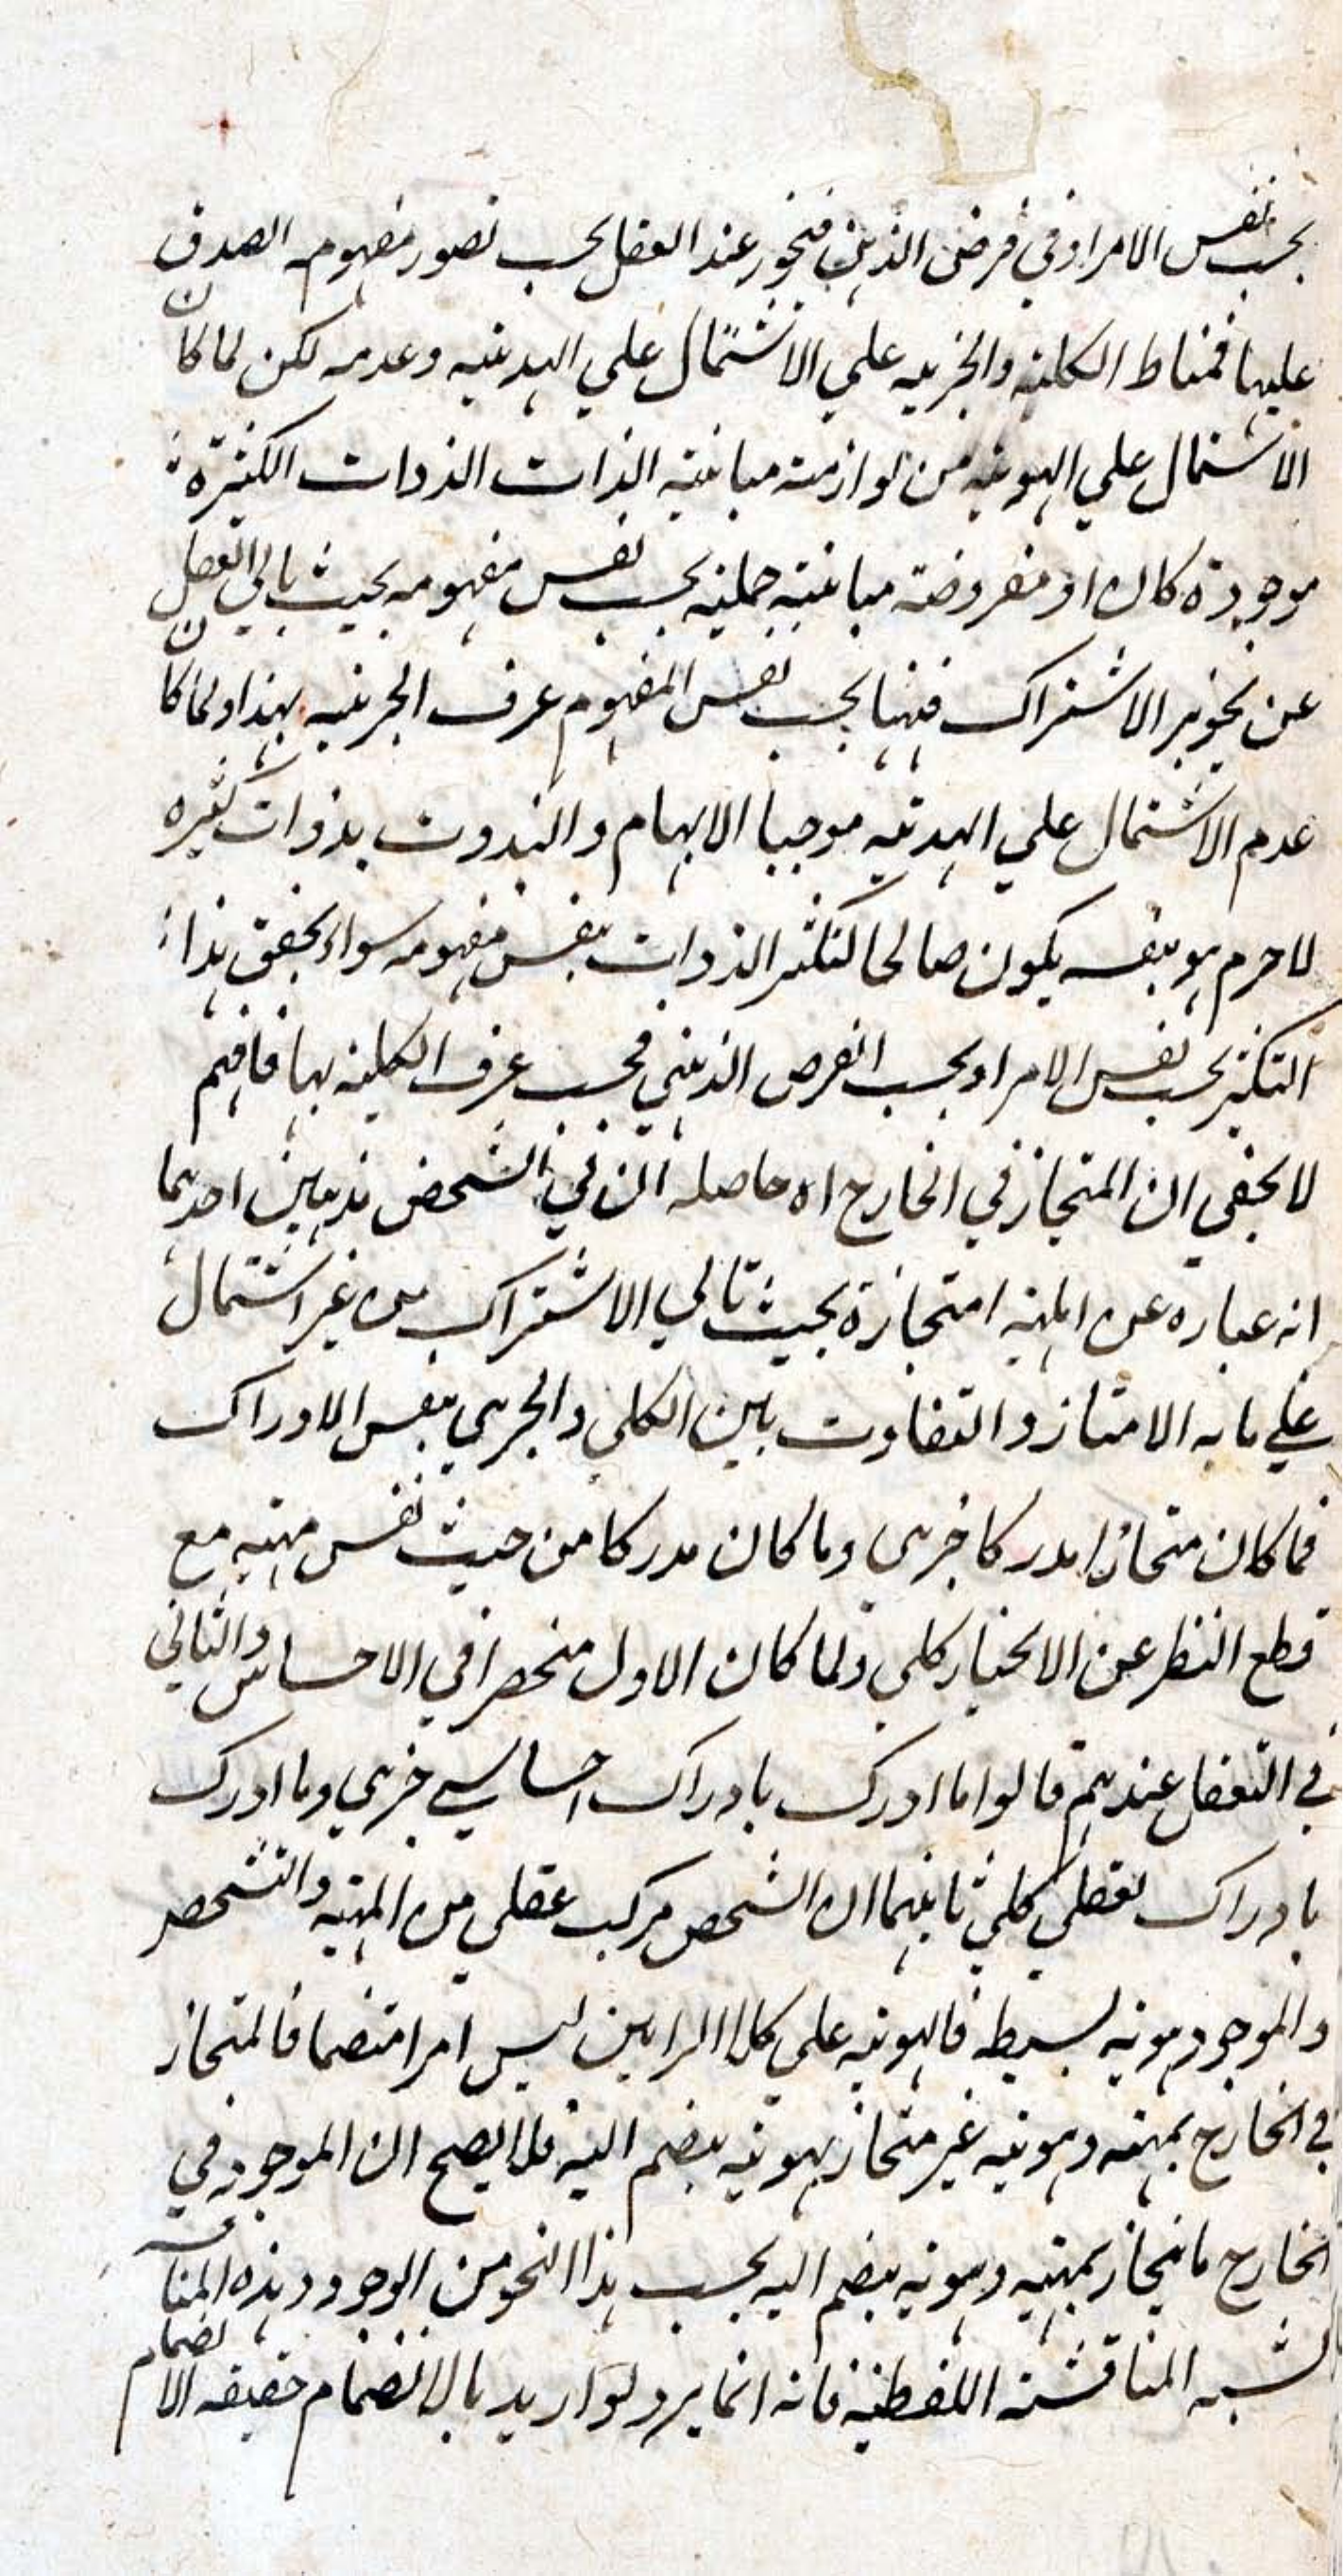 بحسب نفس الامر او في فرض الذهن فيجوز عند العقل بحسب تصور مفهومه الصدق
عليها فمناط الكلية والجزييه علي الاشتمال علي الهديه وعدمه لكن لما كان
الاشتمال علي الهويه من لوازمه مباينة الذات الذوات الكثيرة
موجودة كان او مفروضة مباينة حملية بحسب نفس مفهومه بحيث يابي العقل
عن تجويز الاشتراك فيها بحسب نفس المفهوم عرف الجزييه بهذا ولما كان
عدم الاشتمال علي الهديه موجبا الابهام و بذوات كثيره
لاجرم هو بنفسه يكون صالحا لتكثر الذوات بنفس مفهومه سواء تحقق هذا
التكثر بحسب نفس الامر او بحسب الفرض الذهني فحسب عرف الكلية بها فافهم
لا يخفي ان المنحاز في الخارج اه حاصله ان في الشخص مذهبين احدهما
انه عباره عن المهية امتحازة بحيث تابي الاشتراك من غير اشتمال
علي ما به الامتياز والتفاوت بين الكلي والجزيي بنفس الادراك
فما كان منحازا مدركا جزيي وما كان مدركا من حيث نفس مهيته مع
قطع النظر عن الانحياز كلي ولما كان الاول منحصرا في الاحساس والثاني
في التعقل عندهم قالوا ما ادرك بادراك احساسي جزيي وما ادرك
بادراك تعقلي كلي ثانيهما ان الشخص مركب عقلي من المهية والتشخص
والموجود هوية بسيطة فالهوية علي كلا الرايين ليس امرا منضما فالمنحاز
في الخارج بمهيته وهويته غير منحاز بهوية ينضم اليه فلا يصح ان الموجود في
الخارج ما ينحاز بمهيته وهويه ينضم اليه بحسب هذا النحو من الوجود وهذه المناقشة
تشبه المناقشة اللفظية فانه انما يرد لو اريد بالانضمام حقيقه الانضمام